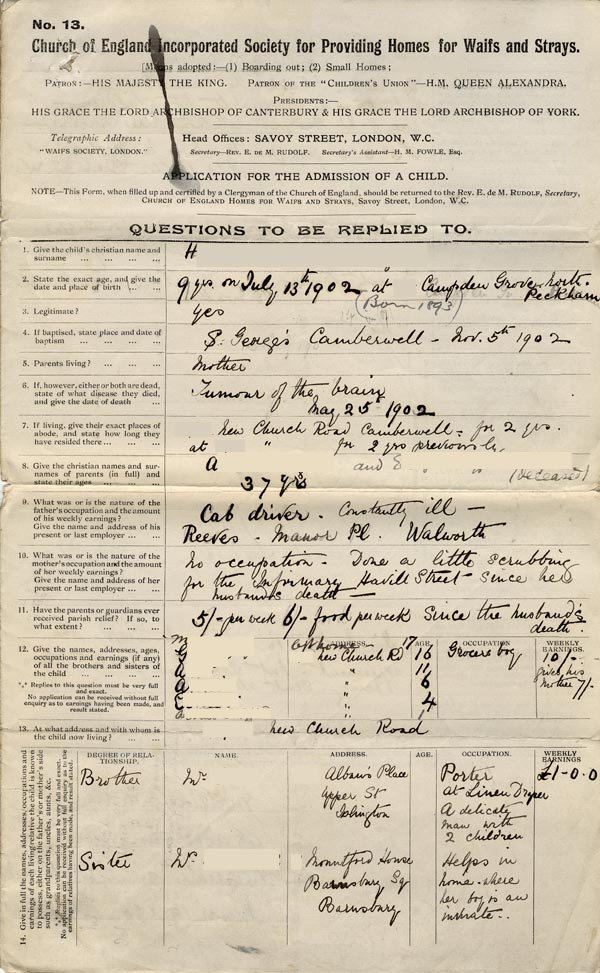 No. 13.
Church of England Incorporated Society for Providing Homes for Waifs and Strays.
[Means adopted:—(1) Boarding out; (2) Small Homes;
Patron:—HIS MAJESTY THE KING. Patron of the "Children's Union"—H.M. QUEEN ALEXANDRA.
Presidents:—
HIS GRACE THE LORD ARCHBISHOP OF CANTERBURY & HIS GRACE THE LORD ARCHBISHOP OF YORK.
Telegraphic Address:
"WAIFS SOCIETY, LONDON."
Head Offices: SAVOY STREET, LONDON, W.C.
Secretary—Rev. E. de M. RUDOLF. Secretary's Assistant—H. M. FOWLE, Esq.
APPLICATION FOR THE ADMISSION OF A CHILD.
NOTE—This Form, when filled up and certified by a Clergyman of the Church of England, should be returned to the Rev. E. de M. Rudolf, Secretary,
Church of England Homes for Waifs and Strays, Savoy Street, London, W.C.
QUESTIONS TO BE REPLIED TO.
1. Give the child's christian name and
surname ... ... ... ...
H
2. State the exact age, and give the
date and place of birth ... ...
9 yrs. on July 13th 1902 at Campden Grove north.
Peckham
(Born 1893)
3. Legitimate? ... ... ...
yes
4. If baptised, state place and date of
baptism ... ... ... ...
S. George's Camberwell - Nov. 5th 1902
5. Parents living? ... ... ...
Mother
6. If, however, either or both are dead,
state of what disease they died,
and give the date of death ...
Tumour of the brain
May 25 1902
7. If living, give their exact places of
abode, and state how long they
have resided there ... ...
New Church Road Camberwell - for 2 yrs.
at " for 2 yrs previously.
8. Give the christian names and sur-
names of parents (in full) and
state their ages ... ...
A and S " " (deceased)
37 yrs
9. What was or is the nature of the
father's occupation and the amount
of his weekly earnings?
Give the name and address of his
present or last employer ...
Cab driver. Constantly ill -
Reeves - Manor Pl. Walworth
10. What was or is the nature of the
mother's occupation and the amount
of her weekly earnings?
Give the name and address of her
present or last employer ...
No occupation - Done a little scrubbing
for the Infirmary Havill Street since her
husband's death -
11. Have the parents or guardians ever
received parish relief? If so, to
what extent? ... ... ...
5/- per week 6/- food per week since the husband's
death.
12. Give the names, addresses, ages,
occupations and earnings (if any)
of all the brothers and sisters of
the child ... ... ...
*.* Replies to this question must be very full
and exact.
No application can be received without full
enquiry as to earnings having been made, and
result stated.
ADDRESS. AGE. OCCUPATION WEEKLY EARNINGS
M at home 17
New Church Rd 16 Grocers boy 10/-
" 11 gives his
" 6 mother 7/-
" 4
"
13. At what address and with whom is
the child now living? ...
New Church Road
14. Give in full the names, addresses, occupations and
earnings of each living relative the child is known
to possess, either on the father's or mother's side
such as grandparents, uncles, aunts, &c.
*.* Replies to this question must be very full and exact.
No application can be received without full enquiry as to the
earnings of relatives having been made, and result stated.
DEGREE OF RELA-
TIONSHIP. NAME. ADDRESS. AGE. OCCUPATION. WEEKLY
EARNINGS
Brother Mr. Albans Place Porter £1-0-0
Upper St at Linen Draper
Islington A delicate
man with
2 children
Sister Mountford House Helps in
Barnsbury Sq home where
Barnsbury her boy is an
inmate..